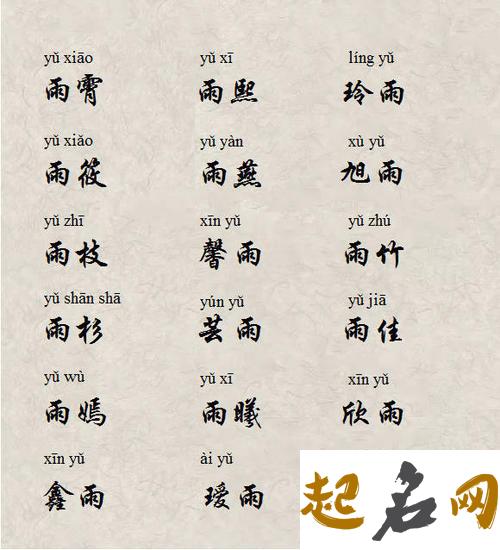 yǔ xiāo yǔ xī líng yǔ
雨霄 雨熙 玲雨
yǔ xiǎo yǔ yàn xù yǔ
雨筱 雨燕 旭雨
yǔ zhī xīn yǔ yǔ zhú
雨枝 馨雨 雨竹
yǔ shān shā yún yǔ yǔ jiā
雨杉 芸雨 雨佳
yǔ wù yǔ xī xīn yǔ
雨嫣 雨曦 欣雨
xīn yǔ ài yǔ
鑫雨 瑷雨
起名网